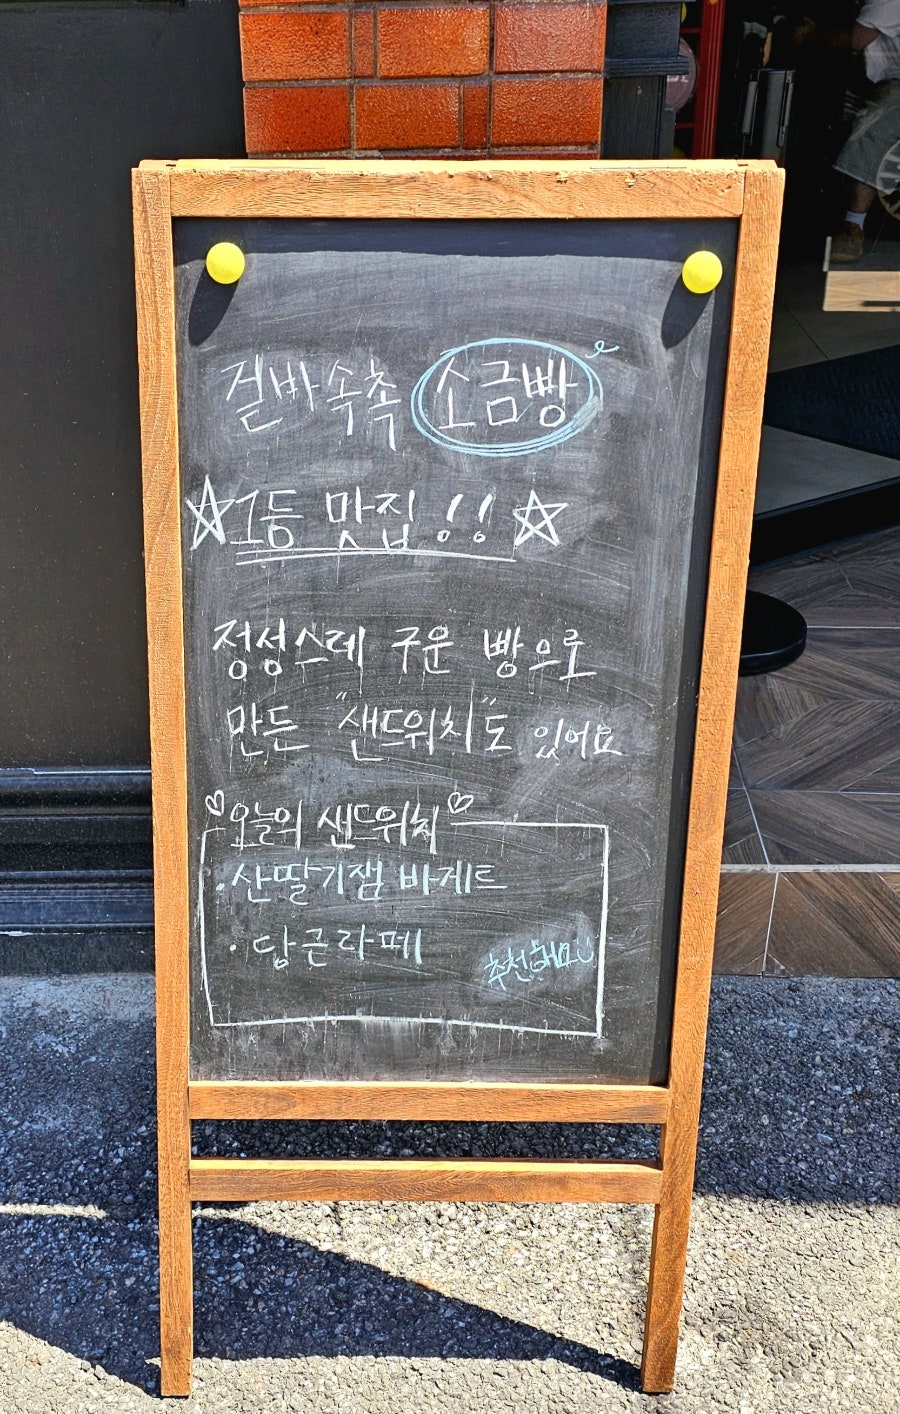 겉바속촉 소금빵
☆1등 맛집!!☆
정성스레 구운 빵으로
만든 "샌드위치"도 있어요
♡오늘의 샌드위치♡
·산딸기잼 바게트
·당근라페
추천해요